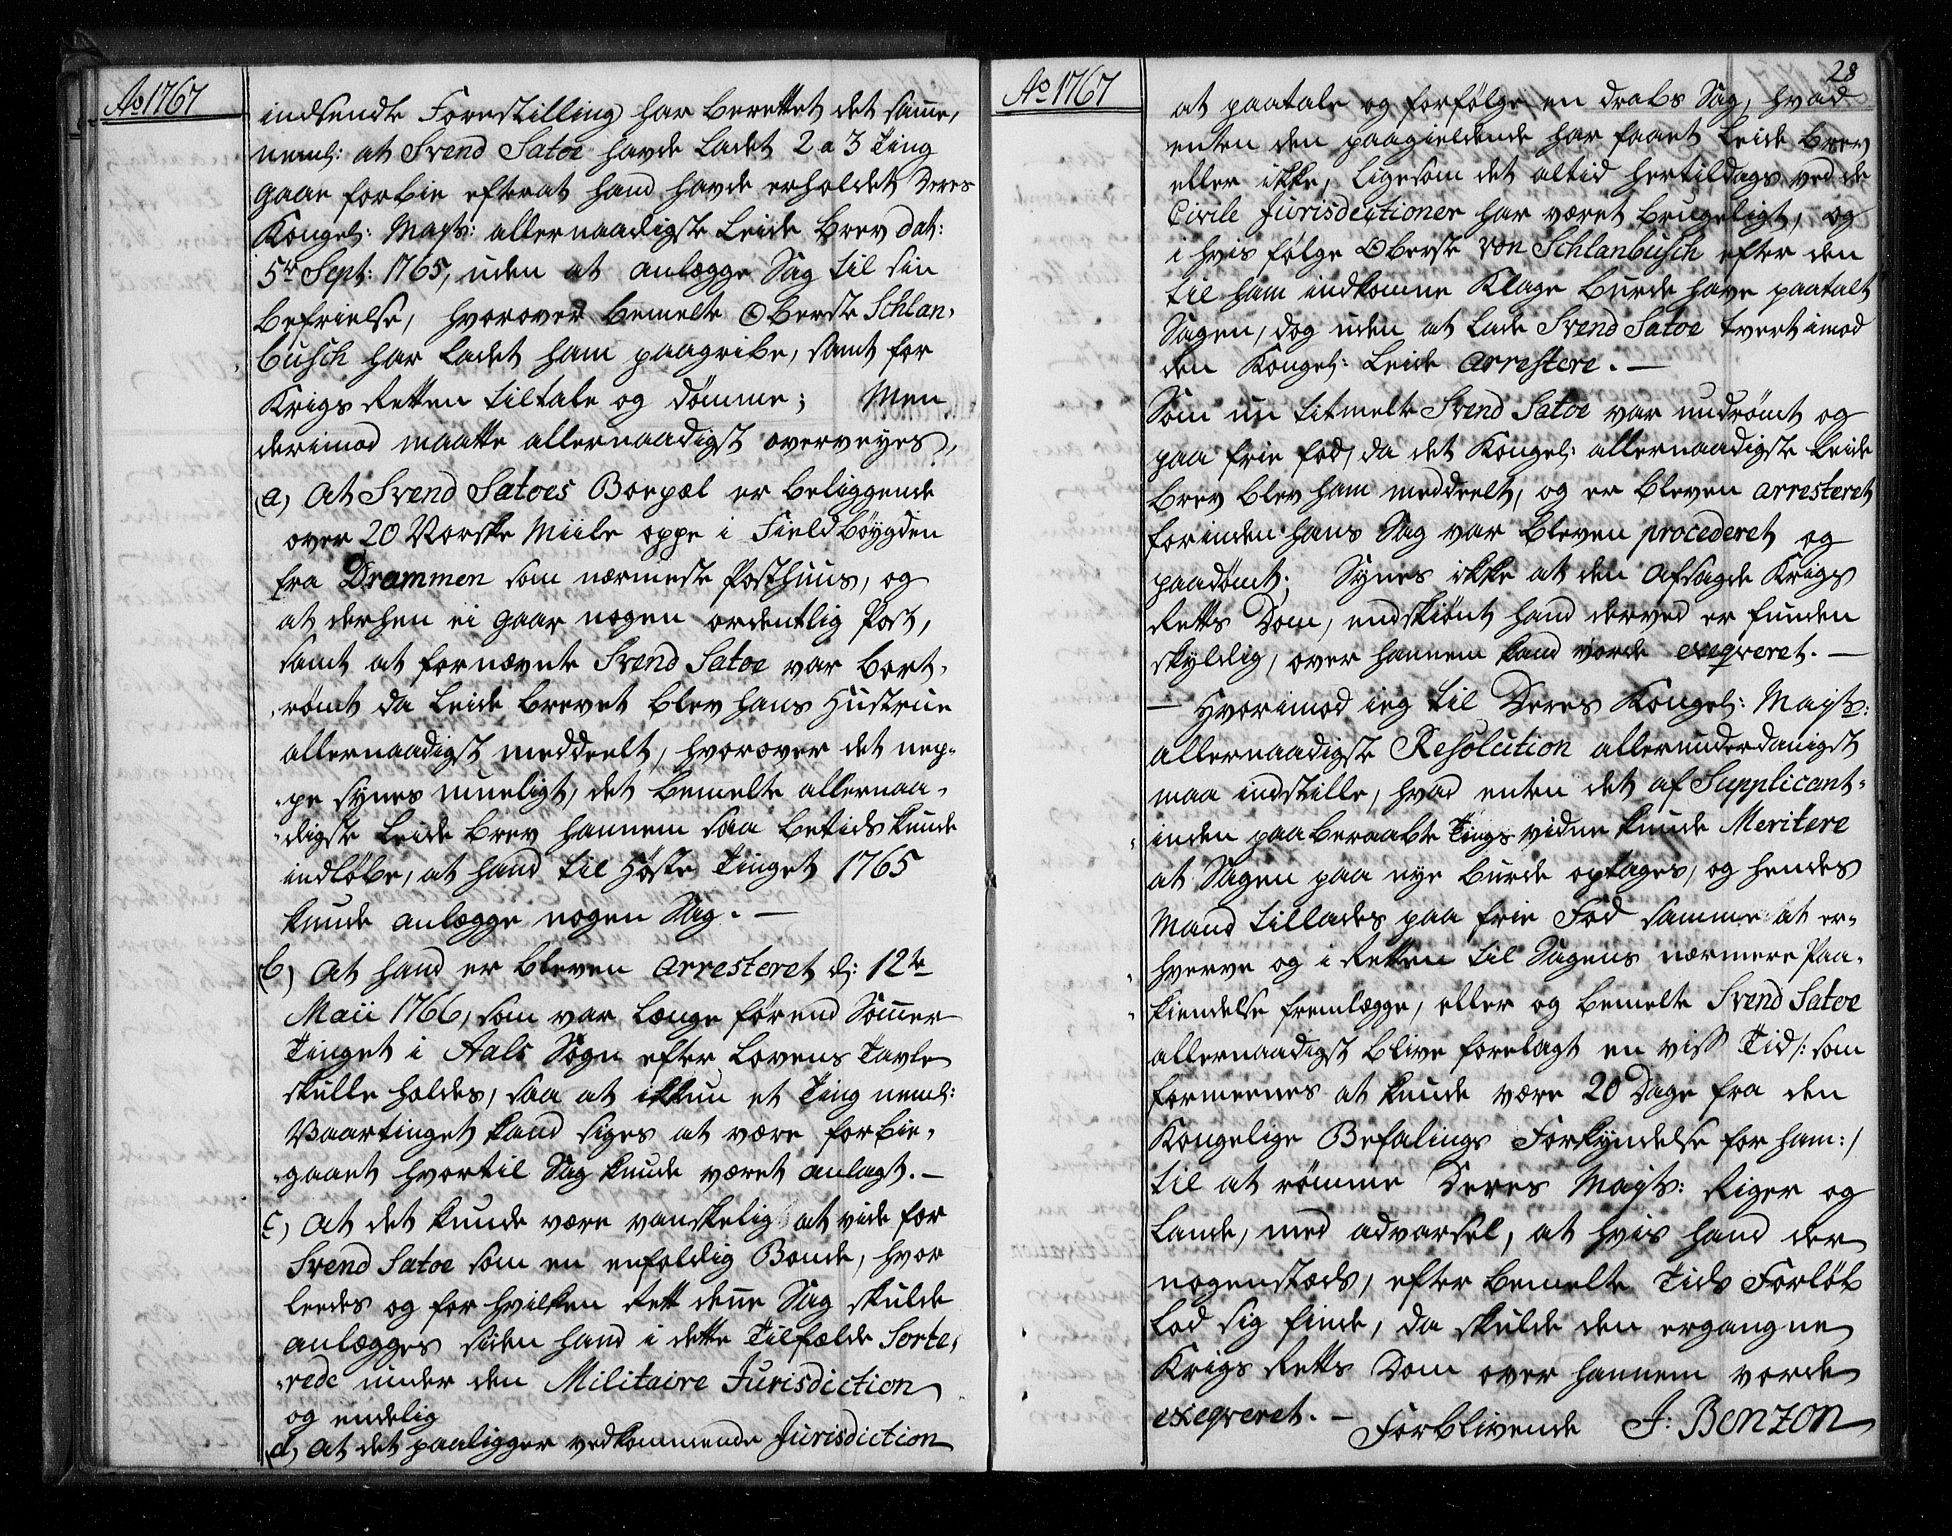 Ao 1767
indsendte Forestilling har berettet det samme,
neml: at Svend Satoe havde ladet 2 a 3 Ting
gaae forbie efterat hand havde erholdet Deres
Kongel: Mayts: allernaadigste Leide Brev dat:
5te Sept: 1765, uden at anlægge Sag til sin
befrielse, hvorover bemelte Oberste Schlan-
busch har ladet ham paagribe, samt for
Krigs Retten tiltale og dømme; Men
derimod maatte allernaadigst overveyes,
(a) At Svend Satoes Boepæl er beliggende
over 20 Norske Miile oppe i Fieldbøygden
fra Drammen som nærmeste Posthuus, og
at derhen ei gaar nogen ordentlig Post,
samt at fornævnte Svend Satoe var bort-
-rømt da Leide Brevet blev hans Hustrue
allernaadigst meddeelt, hvorover det nep-
-pe synes mueligt, det bemelte allernaa-
-digste Leide Brev hannem saa betids kunde
indløbe, at hand til Høste Tinget 1765
kunde anlægge nogen Sag. —
(b) At hand er bleven arresteret d: 12te
Maii 1766, som var længe førend Sommer
Tinget i Aals Sogn efter Lovens Tavle
skulle holdes, saa at ikkun et Ting neml:
Vaartinget kand siges at være forbie-
-gaaet hvortil Sag kunde været anlagt. —
c) At det kunde være vanskelig at vide for
Svend Satoe som en enfoldig Bonde, hvor
leedes og for hvilken Rett denne Sag skulde
anlægges siden hand i dette Tilfælde Sorte-
-rede under den Militaire Jurisdiction
og endelig
(d) At det paaligger vedkommende Jurisdiction
Ao 1767
28
at paatale og forfølge en drabs Sag, hvad
enten den paagieldende har faaet Leide Brev
eller ikke, ligesom det altid hertildags ved de
Civile Jurisdictioner har været brugeligt, og
i hvis følge Oberste von Schlanbusch efter den
til ham indkomne Klage burde have paatalt
Sagen, dog uden at lade Svend Satoe tvert imod
den Kongel: Leide arrestere. —
Som nu titmelte Svend Satoe var undrømt og
paa frie fod, da det Kongel: allernaadigste Leide
Brev blev ham meddeelt, og er bleven arresteret
forinden hans Sag var bleven procederet og
paadømt; Synes ikke at den afsagde Krigs
Retts Dom, endskiønt hand derved er funden
skyldig, over hannem kand vorde exeqveret. —
— Hvorimod ieg til Deres Kongel: Mayts:
allernaadigste Resolution allerunderdanigst
maa indstille, hvad enten det af Supplicant-
inden paaberaabte Tings vidne kunde Meritere
at Sagen paa nye burde optages, og hendes
Mand tillades paa frie Fod samme at er-
hverve og i Retten til Sagens nærmere Paa-
kiendelse fremlægge, eller og bemelte Svend Satoe
allernaadigst blive forelagt en viss Tid /: som
formeenes at kunde være 20 Dage fra den
Kongelige Befalings Forkyndelse for ham :/
til at rømme Deres Mayts: Riger og
Lande, med advarsel, at hvis hand der
nogenstæds, efter bemelte Tids Forløb
lod sig finde, da skulde den ergangne
Krigs Retts Dom over hannem vorde
exeqveret. — Forblivende J: Benzon